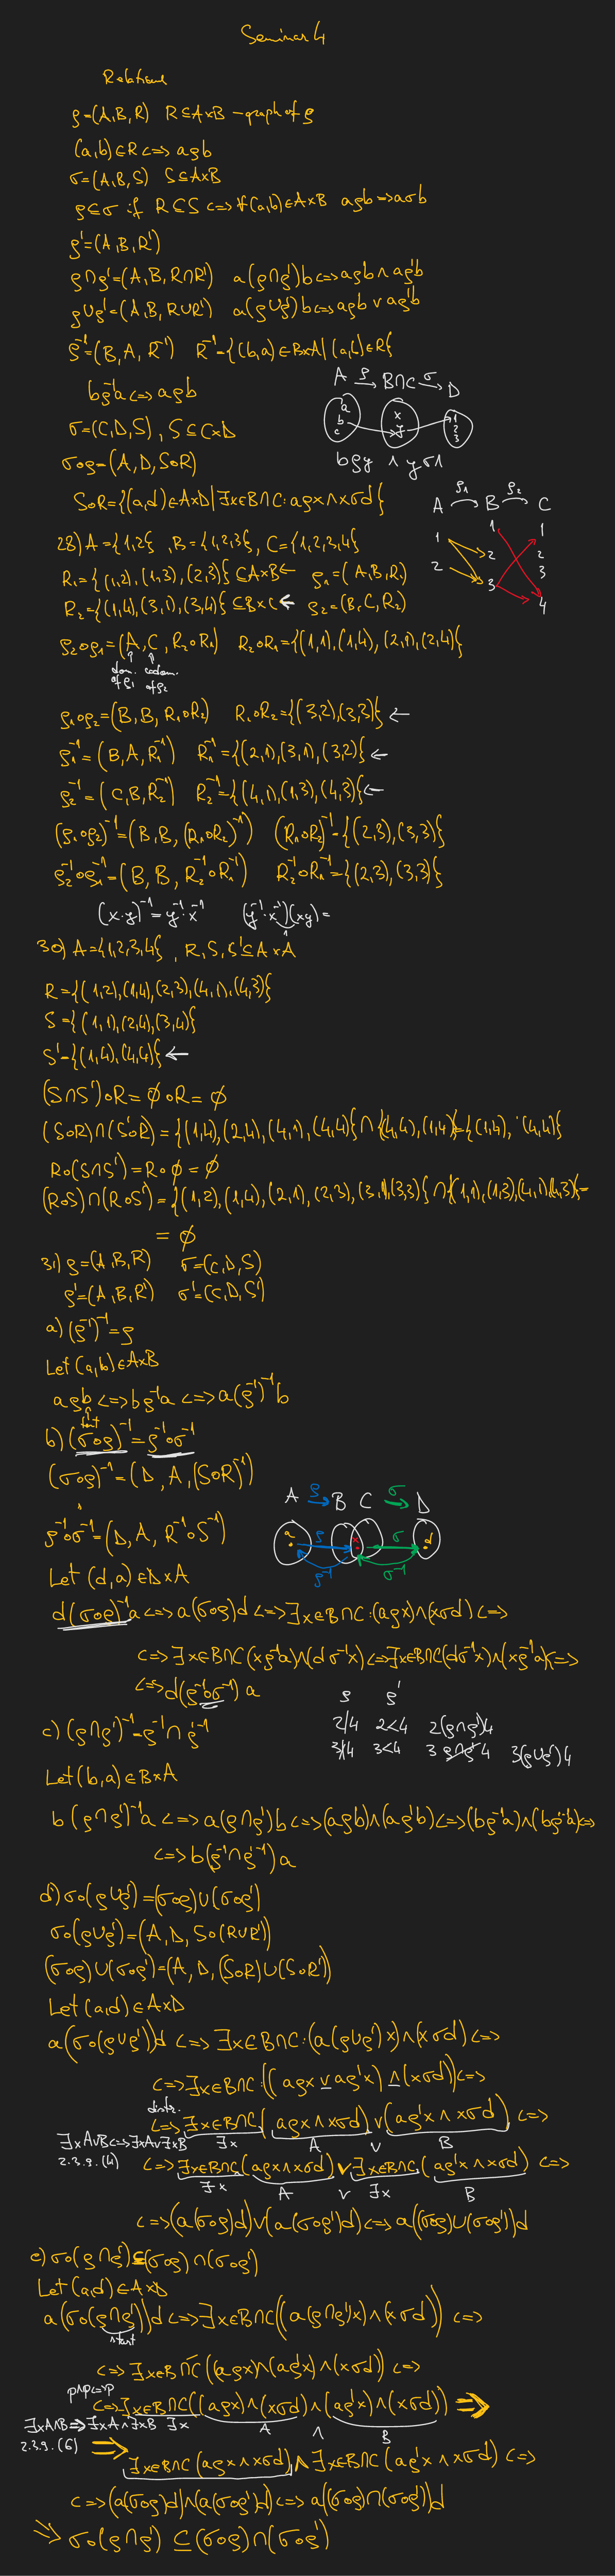 Seminar 4
Relations
ρ=(A,B,R) R⊆A×B - graph of ρ
(a,b)∈R <=> aρb
σ=(A,B,S) S⊆A×B
ρ⊆σ if R⊆S <=> ∀(a,b)∈A×B aρb=>aσb
ρ'=(A,B,R')
ρ∩ρ'=(A,B,R∩R') a(ρ∩ρ')b<=>aρb∧aρ'b
ρ∪ρ'=(A,B,R∪R') a(ρ∪ρ')b<=>aρb∨aρ'b
ρ⁻¹=(B,A,R⁻¹) R⁻¹={(b,a)∈B×A|(a,b)∈R}
bρ⁻¹a<=>aρb
A ρ→ B∩C σ→ D
a b c x y 1 2 3
bρy ∧ yσ1
σ=(C,D,S), S⊆C×D
σ∘ρ=(A,D,S∘R)
S∘R={(a,d)∈A×D|∃x∈B∩C: aρx∧xσd}
A ρ₁ B ρ₂ C
1 2 1 2 3 1 2 3 4
28) A={1,2}, B={1,2,3}, C={1,2,3,4}
R₁={(1,2),(1,3),(2,3)}⊆A×B← ρ₁=(A,B,R₁)
R₂={(1,4),(3,1),(3,4)}⊆B×C← ρ₂=(B,C,R₂)
ρ₂∘ρ₁=(A,C,R₂∘R₁) R₂∘R₁={(1,1),(1,4),(2,1),(2,4)}
↑ ↑
dom. codom.
of ρ₁ of ρ₂
ρ₁∘ρ₂=(B,B,R₁∘R₂) R₁∘R₂={(3,2),(3,3)}←
ρ₁⁻¹=(B,A,R₁⁻¹) R₁⁻¹={(2,1),(3,1),(3,2)}←
ρ₂⁻¹=(C,B,R₂⁻¹) R₂⁻¹={(4,1),(1,3),(4,3)}←
(ρ₁∘ρ₂)⁻¹=(B,B,(R₁∘R₂)⁻¹) (R₁∘R₂)⁻¹={(2,3),(3,3)}
ρ₂⁻¹∘ρ₁⁻¹=(B,B,R₂⁻¹∘R₁⁻¹) R₂⁻¹∘R₁⁻¹={(2,3),(3,3)}
(x·y)⁻¹=y⁻¹·x⁻¹ (y⁻¹·x⁻¹)(xy)=
1
30) A={1,2,3,4}, R,S,S'⊆A×A
R={(1,2),(1,4),(2,3),(4,1),(4,3)}
S={(1,1),(2,4),(3,4)}
S'={(1,4),(4,4)}←
(S∩S')∘R=∅∘R=∅
(S∘R)∩(S'∘R)={(1,4),(2,4),(4,1),(4,4)}∩{(4,4),(1,4)}={(1,4),(4,4)}
R∘(S∩S')=R∘∅=∅
(R∘S)∩(R∘S')={(1,2),(1,4),(2,1),(2,3),(3,1),(3,3)}∩{(1,1),(1,3),(4,1),(4,3)}=
=∅
31) ρ=(A,B,R) σ=(C,D,S)
ρ'=(A,B,R') σ'=(C,D,S')
a) (ρ⁻¹)⁻¹=ρ
Let (a,b)∈A×B
aρb<=>bρ⁻¹a<=>a(ρ⁻¹)⁻¹b
start
b) (σ∘ρ)⁻¹=ρ⁻¹∘σ⁻¹
(σ∘ρ)⁻¹=(D,A,(S∘R)⁻¹)
ρ⁻¹∘σ⁻¹=(D,A,R⁻¹∘S⁻¹)
A ρ→ B C σ→ D
a ρ x σ d
ρ⁻¹ σ⁻¹
Let (d,a)∈D×A
d(σ∘ρ)⁻¹a<=>a(σ∘ρ)d<=>∃x∈B∩C:(aρx)∧(xσd)<=>
<=>∃x∈B∩C(xρ⁻¹a)∧(dσ⁻¹x)<=>∃x∈B∩C(dσ⁻¹x)∧(xρ⁻¹a)<=>
<=>d(ρ⁻¹∘σ⁻¹)a
ρ ρ'
2/4 2<4 2(ρ∩ρ')4
3∤4 3<4 3 ρ∩ρ' 4 3(ρ∪ρ')4
c) (ρ∩ρ')⁻¹=ρ⁻¹∩ρ'⁻¹
Let (b,a)∈B×A
b(ρ∩ρ')⁻¹a<=>a(ρ∩ρ')b<=>(aρb)∧(aρ'b)<=>(bρ⁻¹a)∧(bρ'⁻¹a)<=>
<=>b(ρ⁻¹∩ρ'⁻¹)a
d) σ∘(ρ∪ρ')=(σ∘ρ)∪(σ∘ρ')
σ∘(ρ∪ρ')=(A,D,S∘(R∪R'))
(σ∘ρ)∪(σ∘ρ')=(A,D,(S∘R)∪(S∘R'))
Let (a,d)∈A×D
a(σ∘(ρ∪ρ'))d<=>∃x∈B∩C:(a(ρ∪ρ')x)∧(xσd)<=>
<=>∃x∈B∩C:((aρx∨aρ'x)∧(xσd))<=>
distr.
<=>∃x∈B∩C(aρx∧xσd)∨(aρ'x∧xσd)<=>
∃x A ∨ B
∃xA∨B<=>∃xA∨∃xB
2.3.9.(4)
<=>∃x∈B∩C(aρx∧xσd)∨∃x∈B∩C(aρ'x∧xσd)<=>
∃x A ∨ ∃x B
<=>(a(σ∘ρ)d)∨(a(σ∘ρ')d)<=>a((σ∘ρ)∪(σ∘ρ'))d
e) σ∘(ρ∩ρ')⊆(σ∘ρ)∩(σ∘ρ')
Let (a,d)∈A×D
a(σ∘(ρ∩ρ'))d<=>∃x∈B∩C((a(ρ∩ρ')x)∧(xσd))<=>
start
<=>∃x∈B∩C((aρx)∧(aρ'x)∧(xσd))<=>
p∧p<=>p
<=>∃x∈B∩C((aρx)∧(xσd)∧(aρ'x)∧(xσd))=>
∃x A ∧ B
∃xA∧B=>∃xA∧∃xB
2.3.9.(6)
=>∃x∈B∩C(aρx∧xσd)∧∃x∈B∩C(aρ'x∧xσd)<=>
<=>(a(σ∘ρ)d)∧(a(σ∘ρ')d)<=>a((σ∘ρ)∩(σ∘ρ'))d
=>σ∘(ρ∩ρ')⊆(σ∘ρ)∩(σ∘ρ')